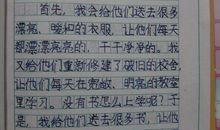 首先，我会给他们送去很多
漂亮、暖和的衣服，让他们每天
都漂漂亮亮的、干干净净的。我
又给他们重新修建了破旧的校舍
让他们每天在宽敞、明亮的教室
里学习。没有书怎么上学呢？于
是，我给他们送去很多书，让他